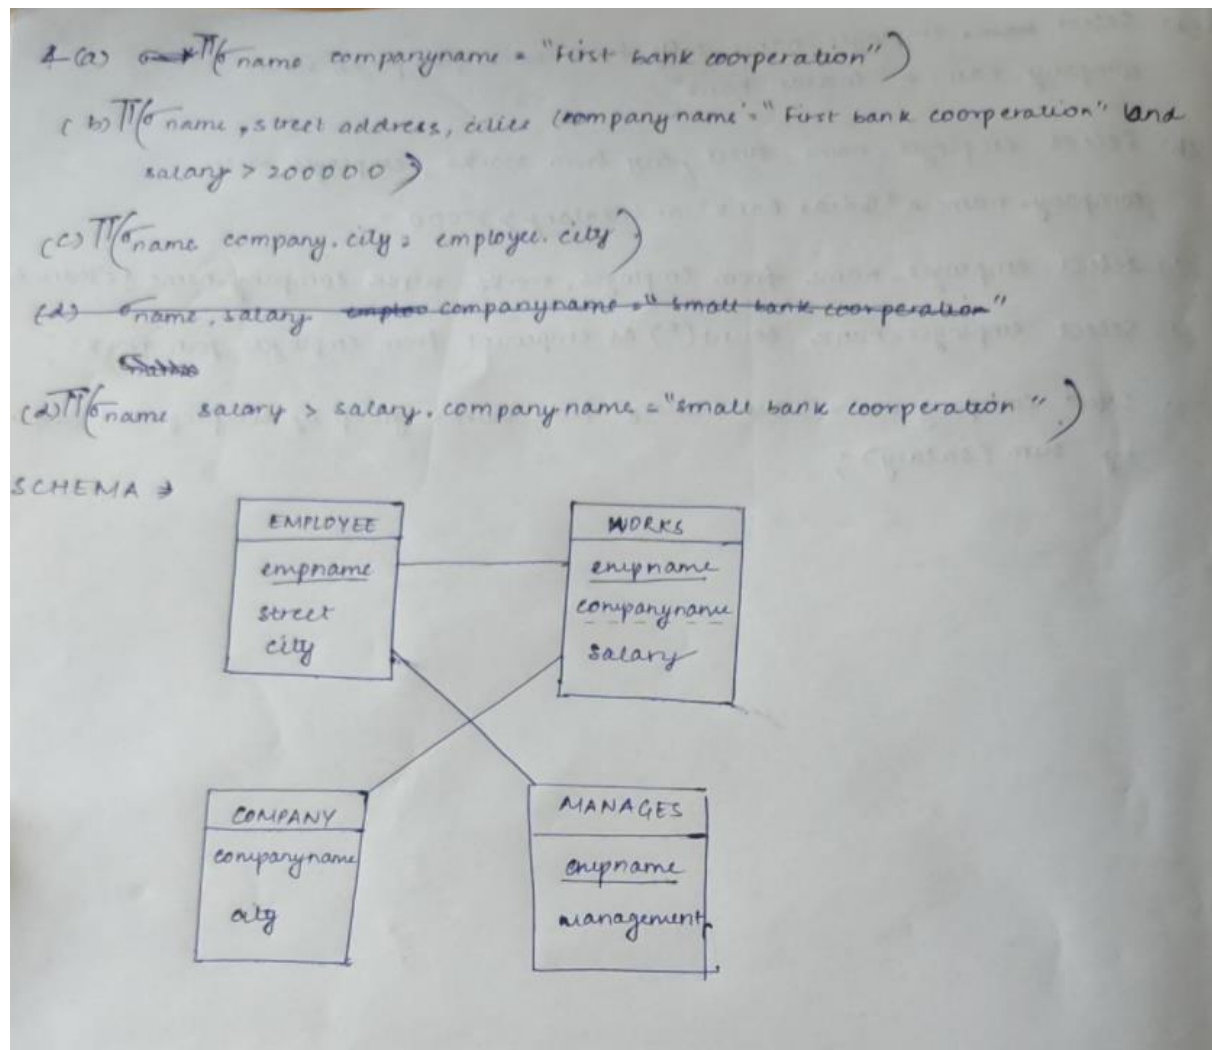 4 (a) Π(σ name companyname = "First bank coorperation")
(b) Π(σ name, street address, cities (companyname = "First bank coorperation" and
salary > 200000)
(c) Π(σ name company.city = employee.city)
(d) σ name, salary companyname = "small bank coorperation"
(d) Π(σ name salary > salary.companyname = "small bank coorperation")
SCHEMA →
EMPLOYEE
empname
street
city
WORKS
empname
companyname
salary
COMPANY
companyname
city
MANAGES
empname
management